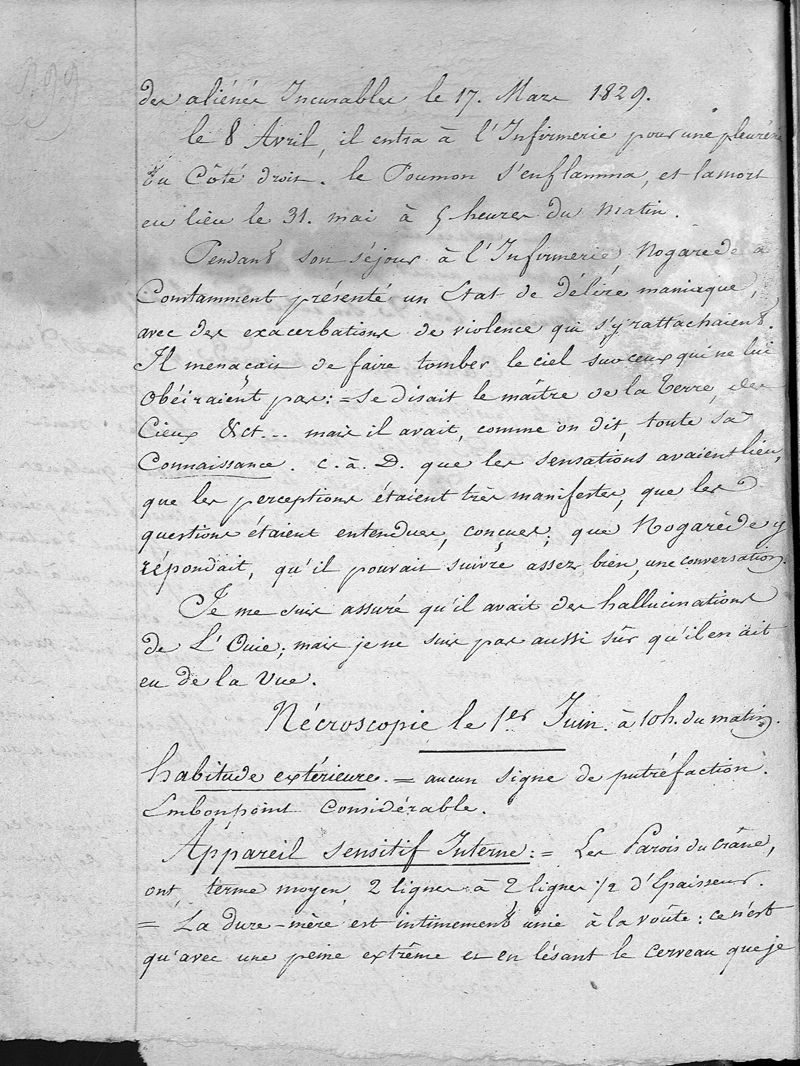 des aliénés Incurables le 17. Mars 1829.
le 8 Avril, il entra à l'Infirmerie pour une pleurésie
du Côté droit. le Poumon s'enflamma, et la mort
eu lieu le 31. mai à 5 heures du matin.
Pendant son séjour à l'Infirmerie, Nogarède a
Constamment présenté un Etat de délire maniaque,
avec des exacerbations de violence qui s'y rattachaient.
Il menaçait de faire tomber le ciel sur ceux qui ne lui
Obéiraient pas: = se disait le maître de la Terre, des
Cieux &ct... mais il avait, comme on dit, toute sa
Connaissance. c. à. D. que les sensations avaient lieu,
que les perceptions étaient très manifestes, que les
questions étaient entendues, conçues; que Nogarède y
répondait, qu'il pouvait suivre assez bien, une conversation.
Je me suis assuré qu'il avait des hallucinations
de L'Ouie; mais je ne suis pas aussi sûr qu'il en ait
eu de la Vue.
Nécroscopie le 1er Juin. à 10h. du matin.
habitude extérieure. = aucun signe de putréfaction.
Embonpoint Considérable.
Appareil sensitif Interne: = Les Parois du Crâne,
ont, terme moyen 2 lignes à 2 lignes 1/2 d'Epaisseur.
= La dure-mère est intimement unie à la voûte: ce n'est
qu'avec une peine extrême et en lésant le cerveau que je